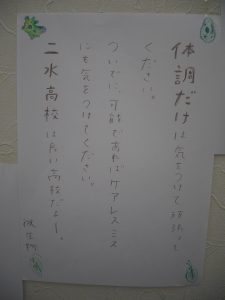 体調だけは気をつけて頑張って
ください。
ついでに、可能であればケアレスミス
にも気をつけてください。
二水高校は良い高校だよー。